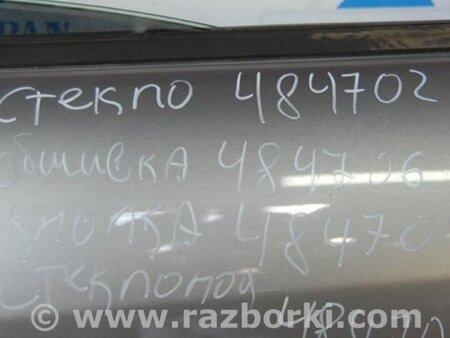 PAN
стекло 484702
обшивка 484706
кнопка 48470
стеклопод
4847
© www.razborki.com